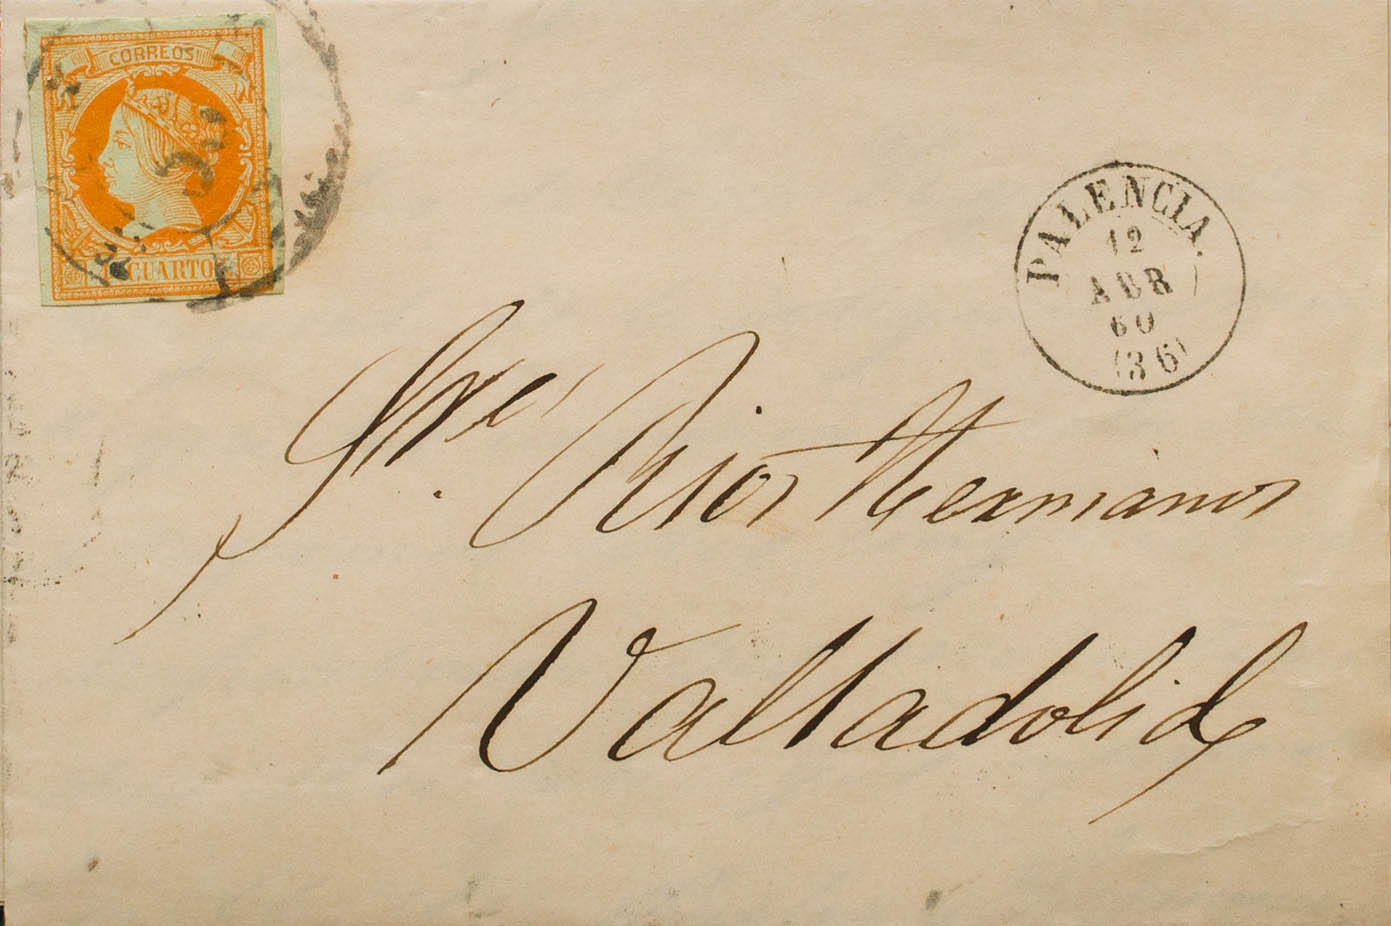 CORREOS
CUARTOS
PALENCIA.
12
ABR
60
(36)
Sres. Rios Hermanos
Valladolid